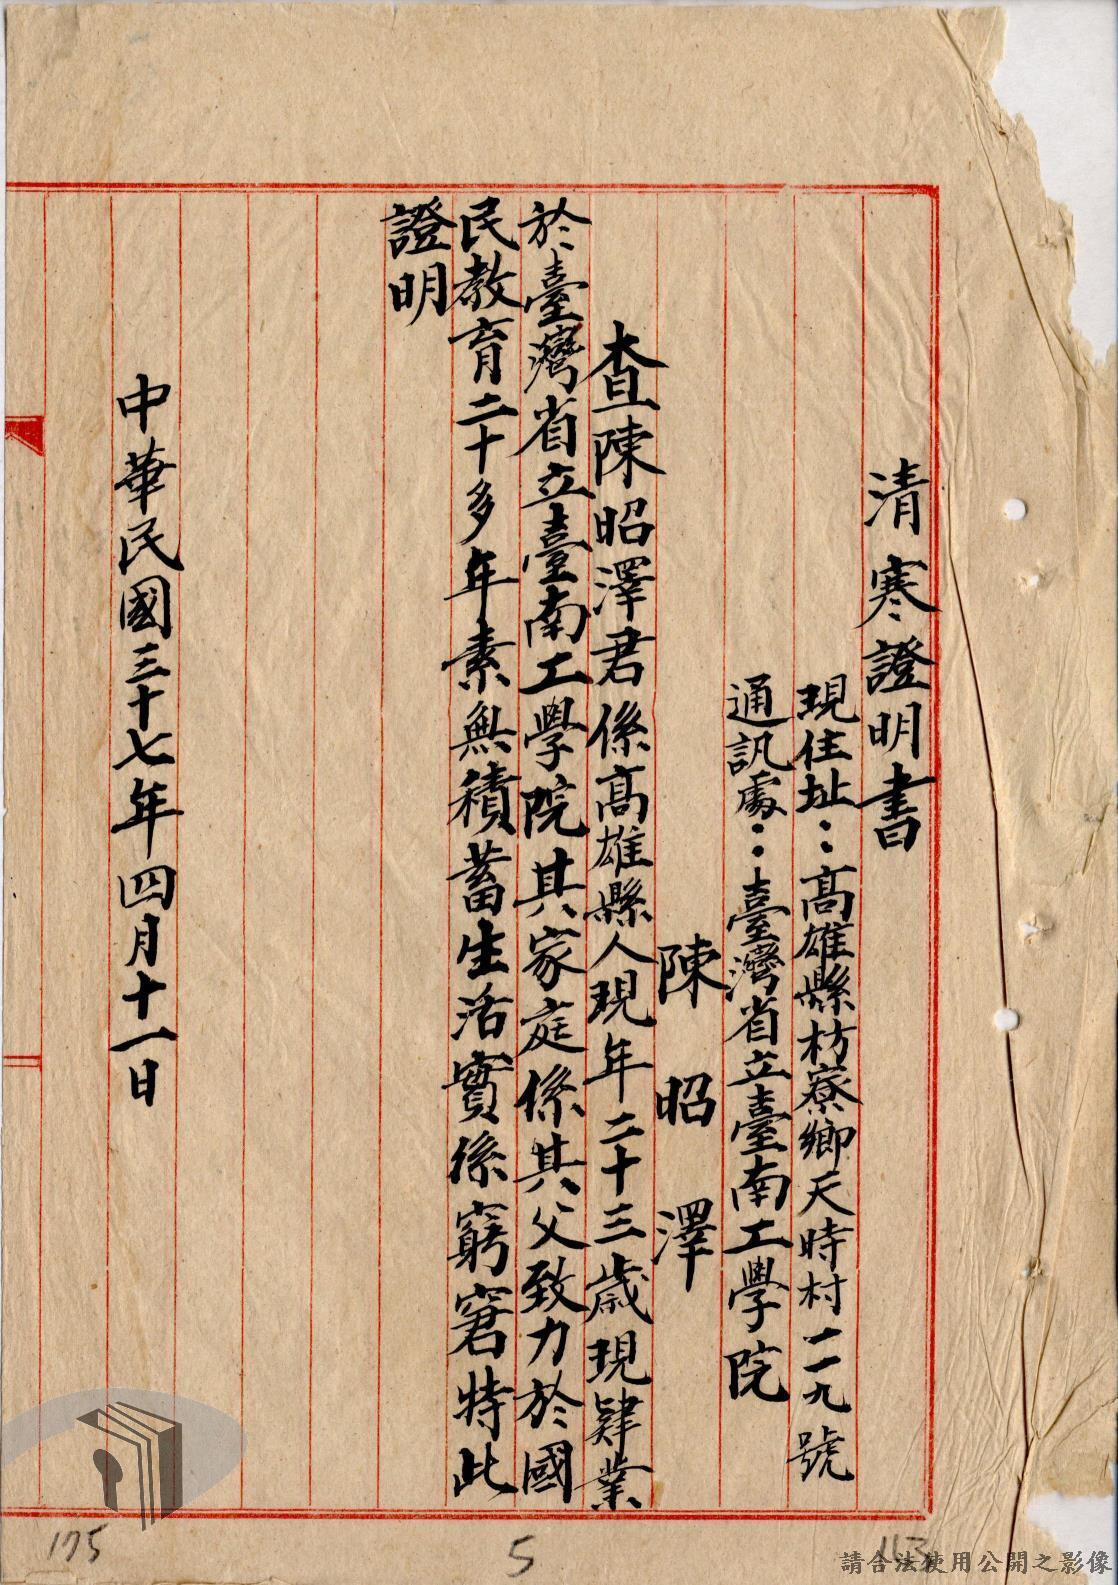 清寒證明書
現住址：高雄縣枋寮鄉天時村一一九號
通訊處：臺灣省立臺南工學院
陳昭澤
查陳昭澤君係高雄縣人現年二十三歲現肄業
於臺灣省立臺南工學院其家庭係其父致力於國
民教育二十多年素無積蓄生活實係窮窘特此
證明
中華民國三十七年四月十一日
175
5
113
請合法使用公開之影像